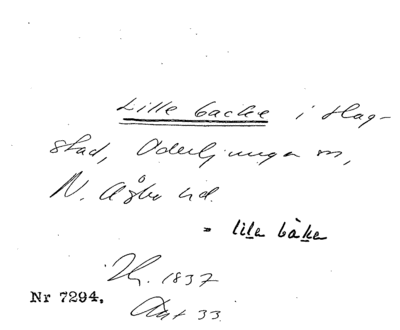 Lille backe i Hag-
stad, Oderljunga sn,
N. Åsbo hd.
= lile bàke
Th. 1837
Nr 7294.
Ant 33